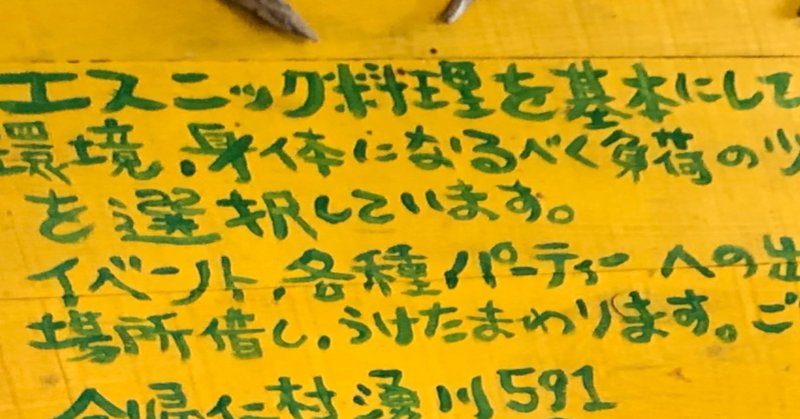 エスニック料理を基本にして
環境、身体になるべく負荷の少
を選択しています。
イベント、各種パーティーへの出
場所借し、うけたまわります。ご
今帰仁村湧川591